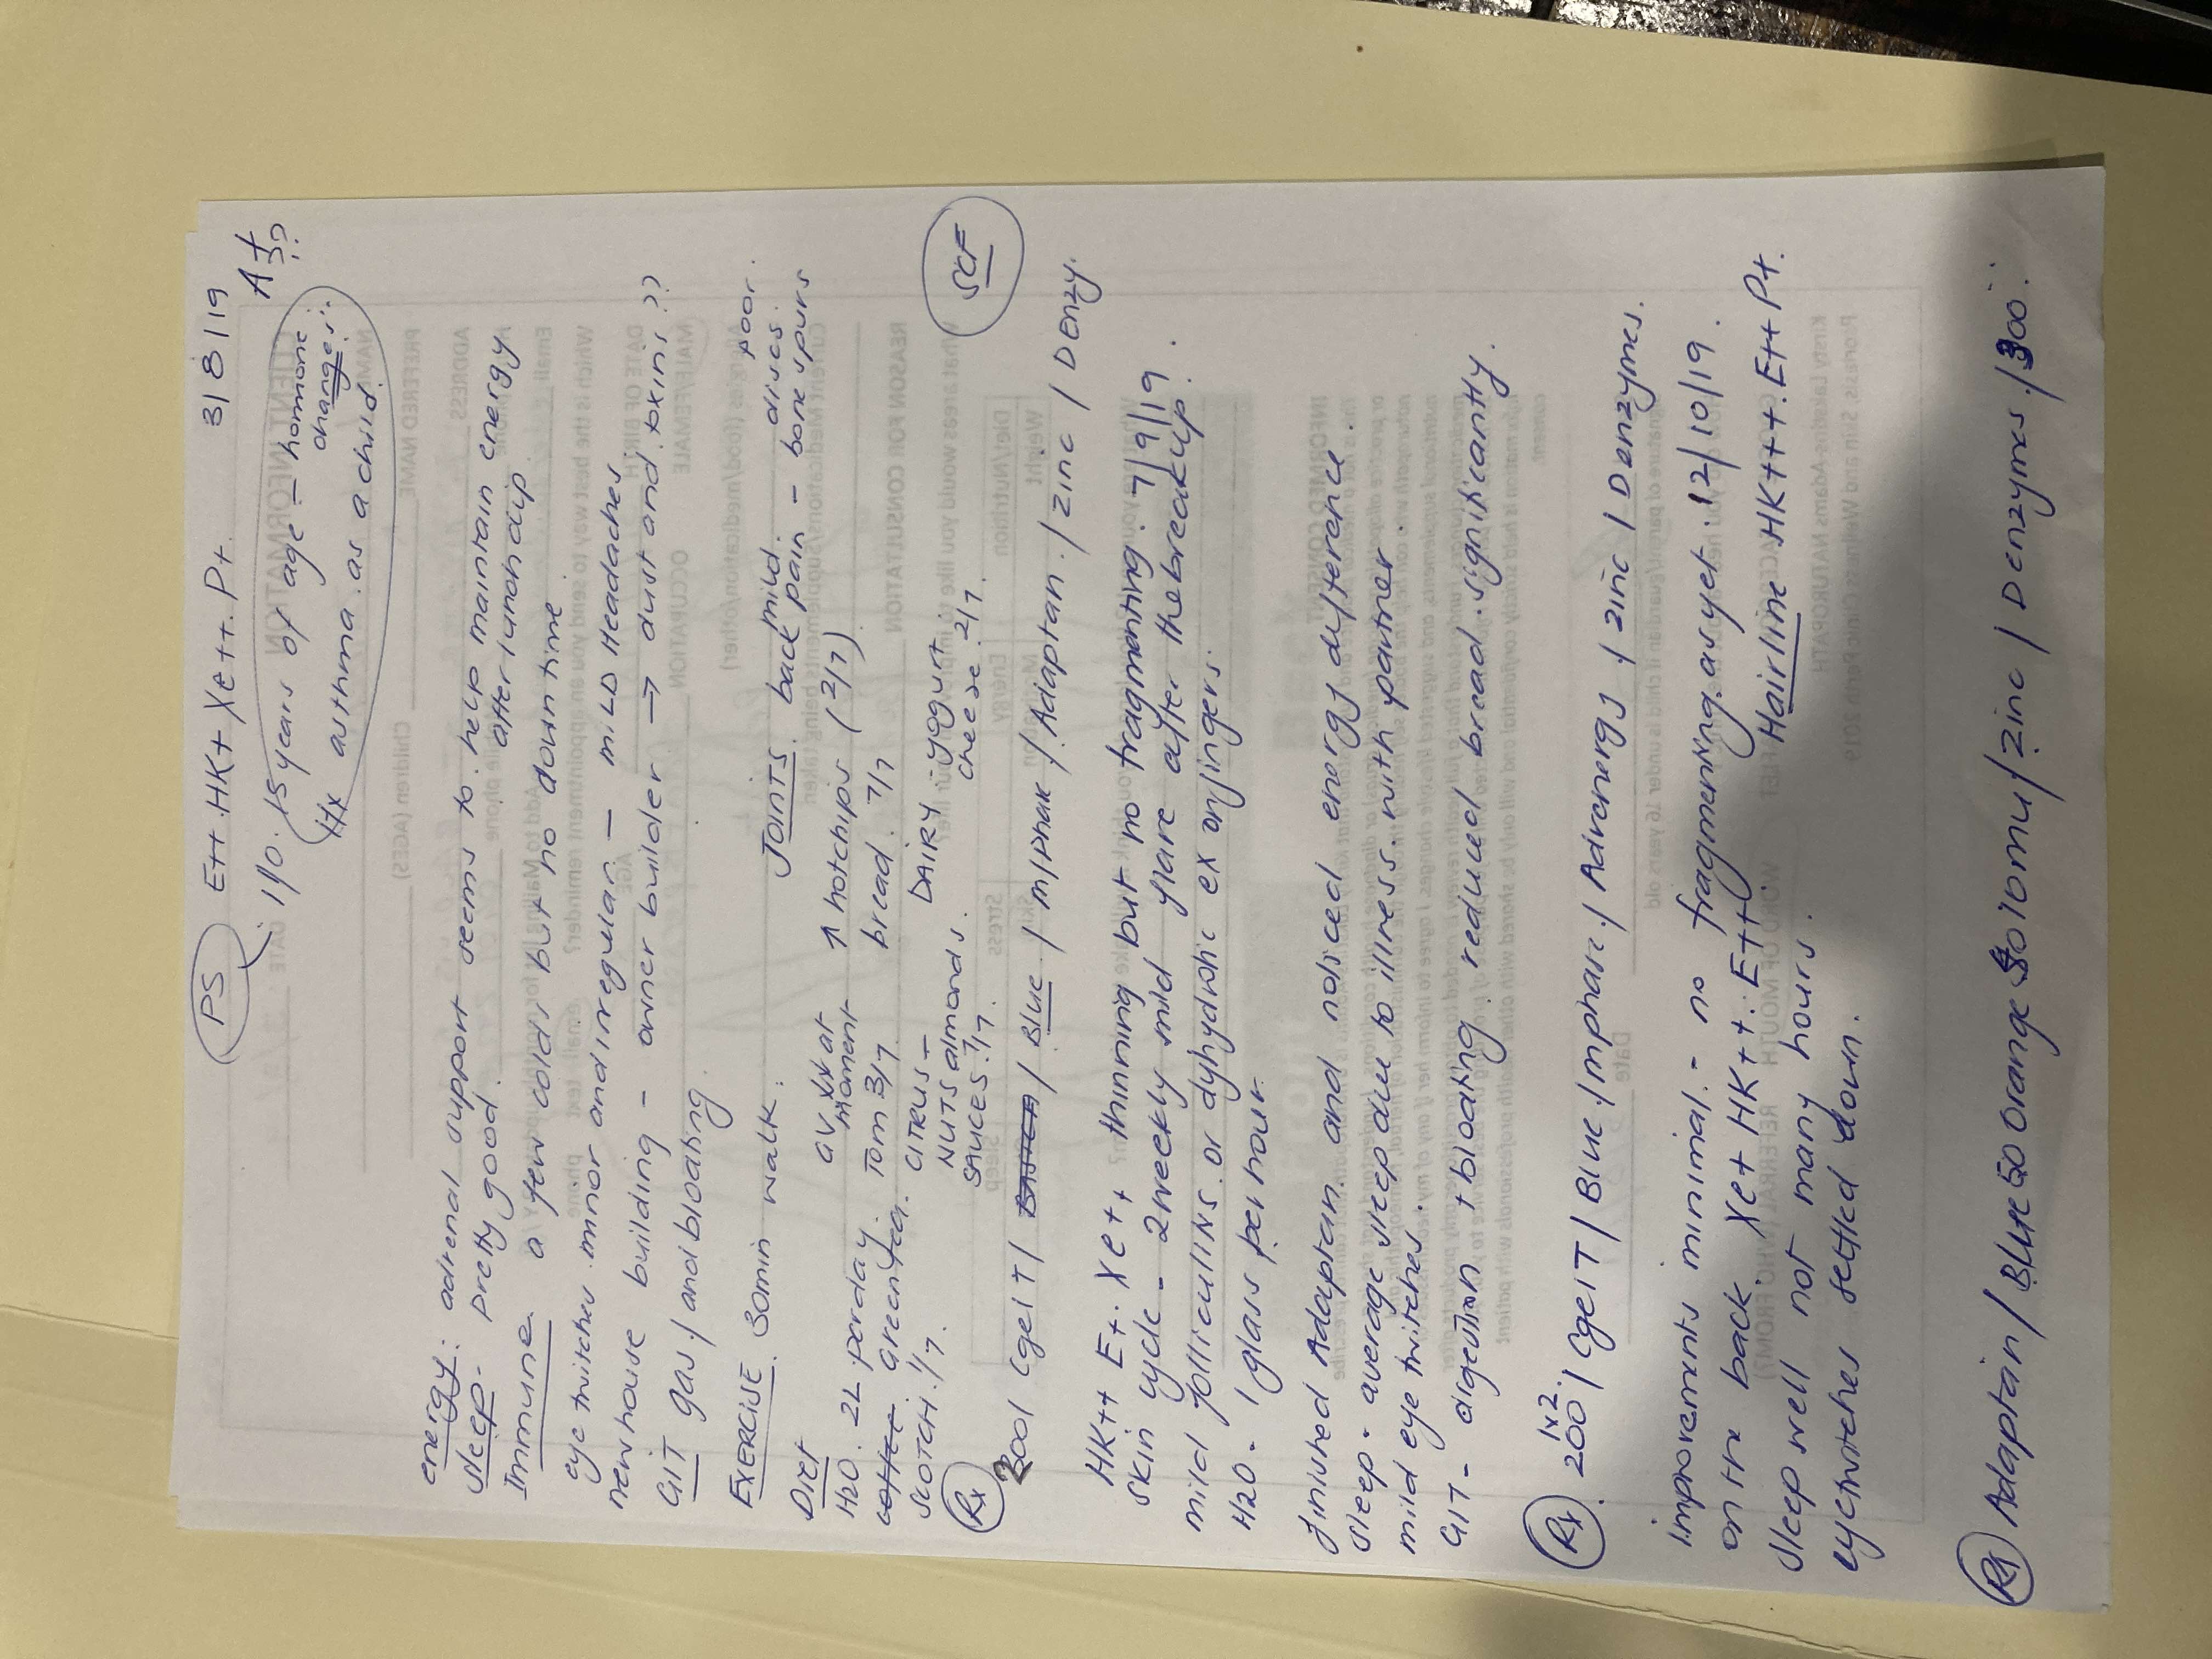 PS E++ HK+ Xe++. P+. 31/8/19
1/0. 15 years of age – hormone changes. A+ ??
Hx asthma. as a child.
energy: adrenal support seems to. help maintain energy
sleep - pretty good. after lunch dip.
Immune. a few colds but no down time.
eye twitches. minor and irregular - MILD Headaches
new house building - owner builder → dust and toxins??
GIT gas / and bloating.
EXERCISE. 30min walk. JOINTS. back mild. discs. poor.
pain - bone spurs
Diet GV XX at moment ↑ hotchips (2/7).
H2O. 2L per day. Tom 3/7. bread. 7/7
coffee. green tea. CITRUS – DAIRY. yoggurt.
SCOTCH. 1/7. NUTS almonds. cheese. 2/7.
SAUCES. 7/7. SCF
Rx 200 | CgelT | Blue | M/Phar / Adaptan. / zinc / Denzy.
HK++ E+. Xe+, thinning but no fragmenting. 7/9/19
skin cycle - 2 weekly mild flare after the breakup.
mild folliculins. or dyhydrotic ex on fingers.
H2O - 1 glass per hour
finished Adaptan and noticed energy difference.
Sleep - average sleep due to illness. with partner.
mild eye twitches.
GIT - digestion. + bloating. reduced bread. significantly.
Rx. 1x2. 200 | CgelT | Blue. / mphar. / Advanergy / zinc / Denzymes.
improvements minimal. - no fragmenting. as yet. 12/10/19.
on the back. Xe+ HK++. E++. Hairline HK+++. E++ P+.
Sleep well not many hours.
eyetwitches settled down.
Rx Adaptan / Blue 50 Orange 10 mu / zinc / Denzymes. / 300.